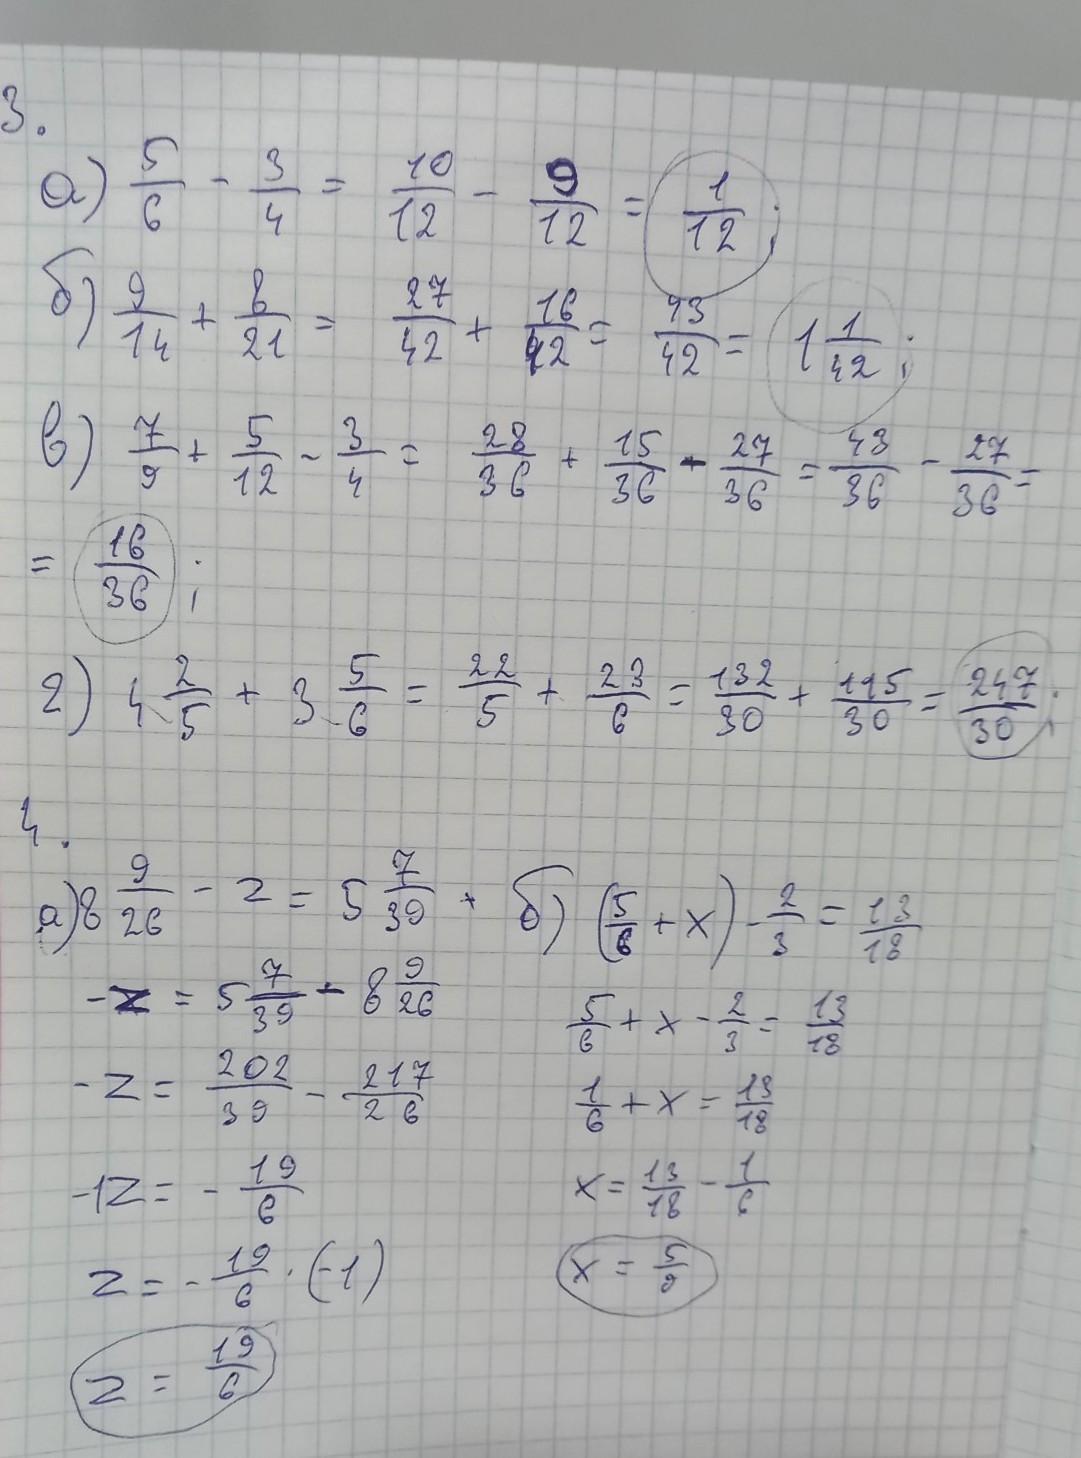 3.
а) 5/6 - 3/4 = 10/12 - 9/12 = 1/12 ;
б) 9/14 + 8/21 = 27/42 + 16/42 = 43/42 = 1 1/42 ;
в) 7/9 + 5/12 - 3/4 = 28/36 + 15/36 - 27/36 = 43/36 - 27/36 =
= 16/36 ;
г) 4 2/5 + 3 5/6 = 22/5 + 23/6 = 132/30 + 115/30 = 247/30 ;
4.
а) 8 9/26 - z = 5 7/39 +
-z = 5 7/39 - 8 9/26
-z = 202/39 - 217/26
-1z = - 19/6
z = - 19/6 · (-1)
z = 19/6
б) (5/6 + x) - 2/3 = 13/18
5/6 + x - 2/3 = 13/18
1/6 + x = 13/18
x = 13/18 - 1/6
x = 5/9